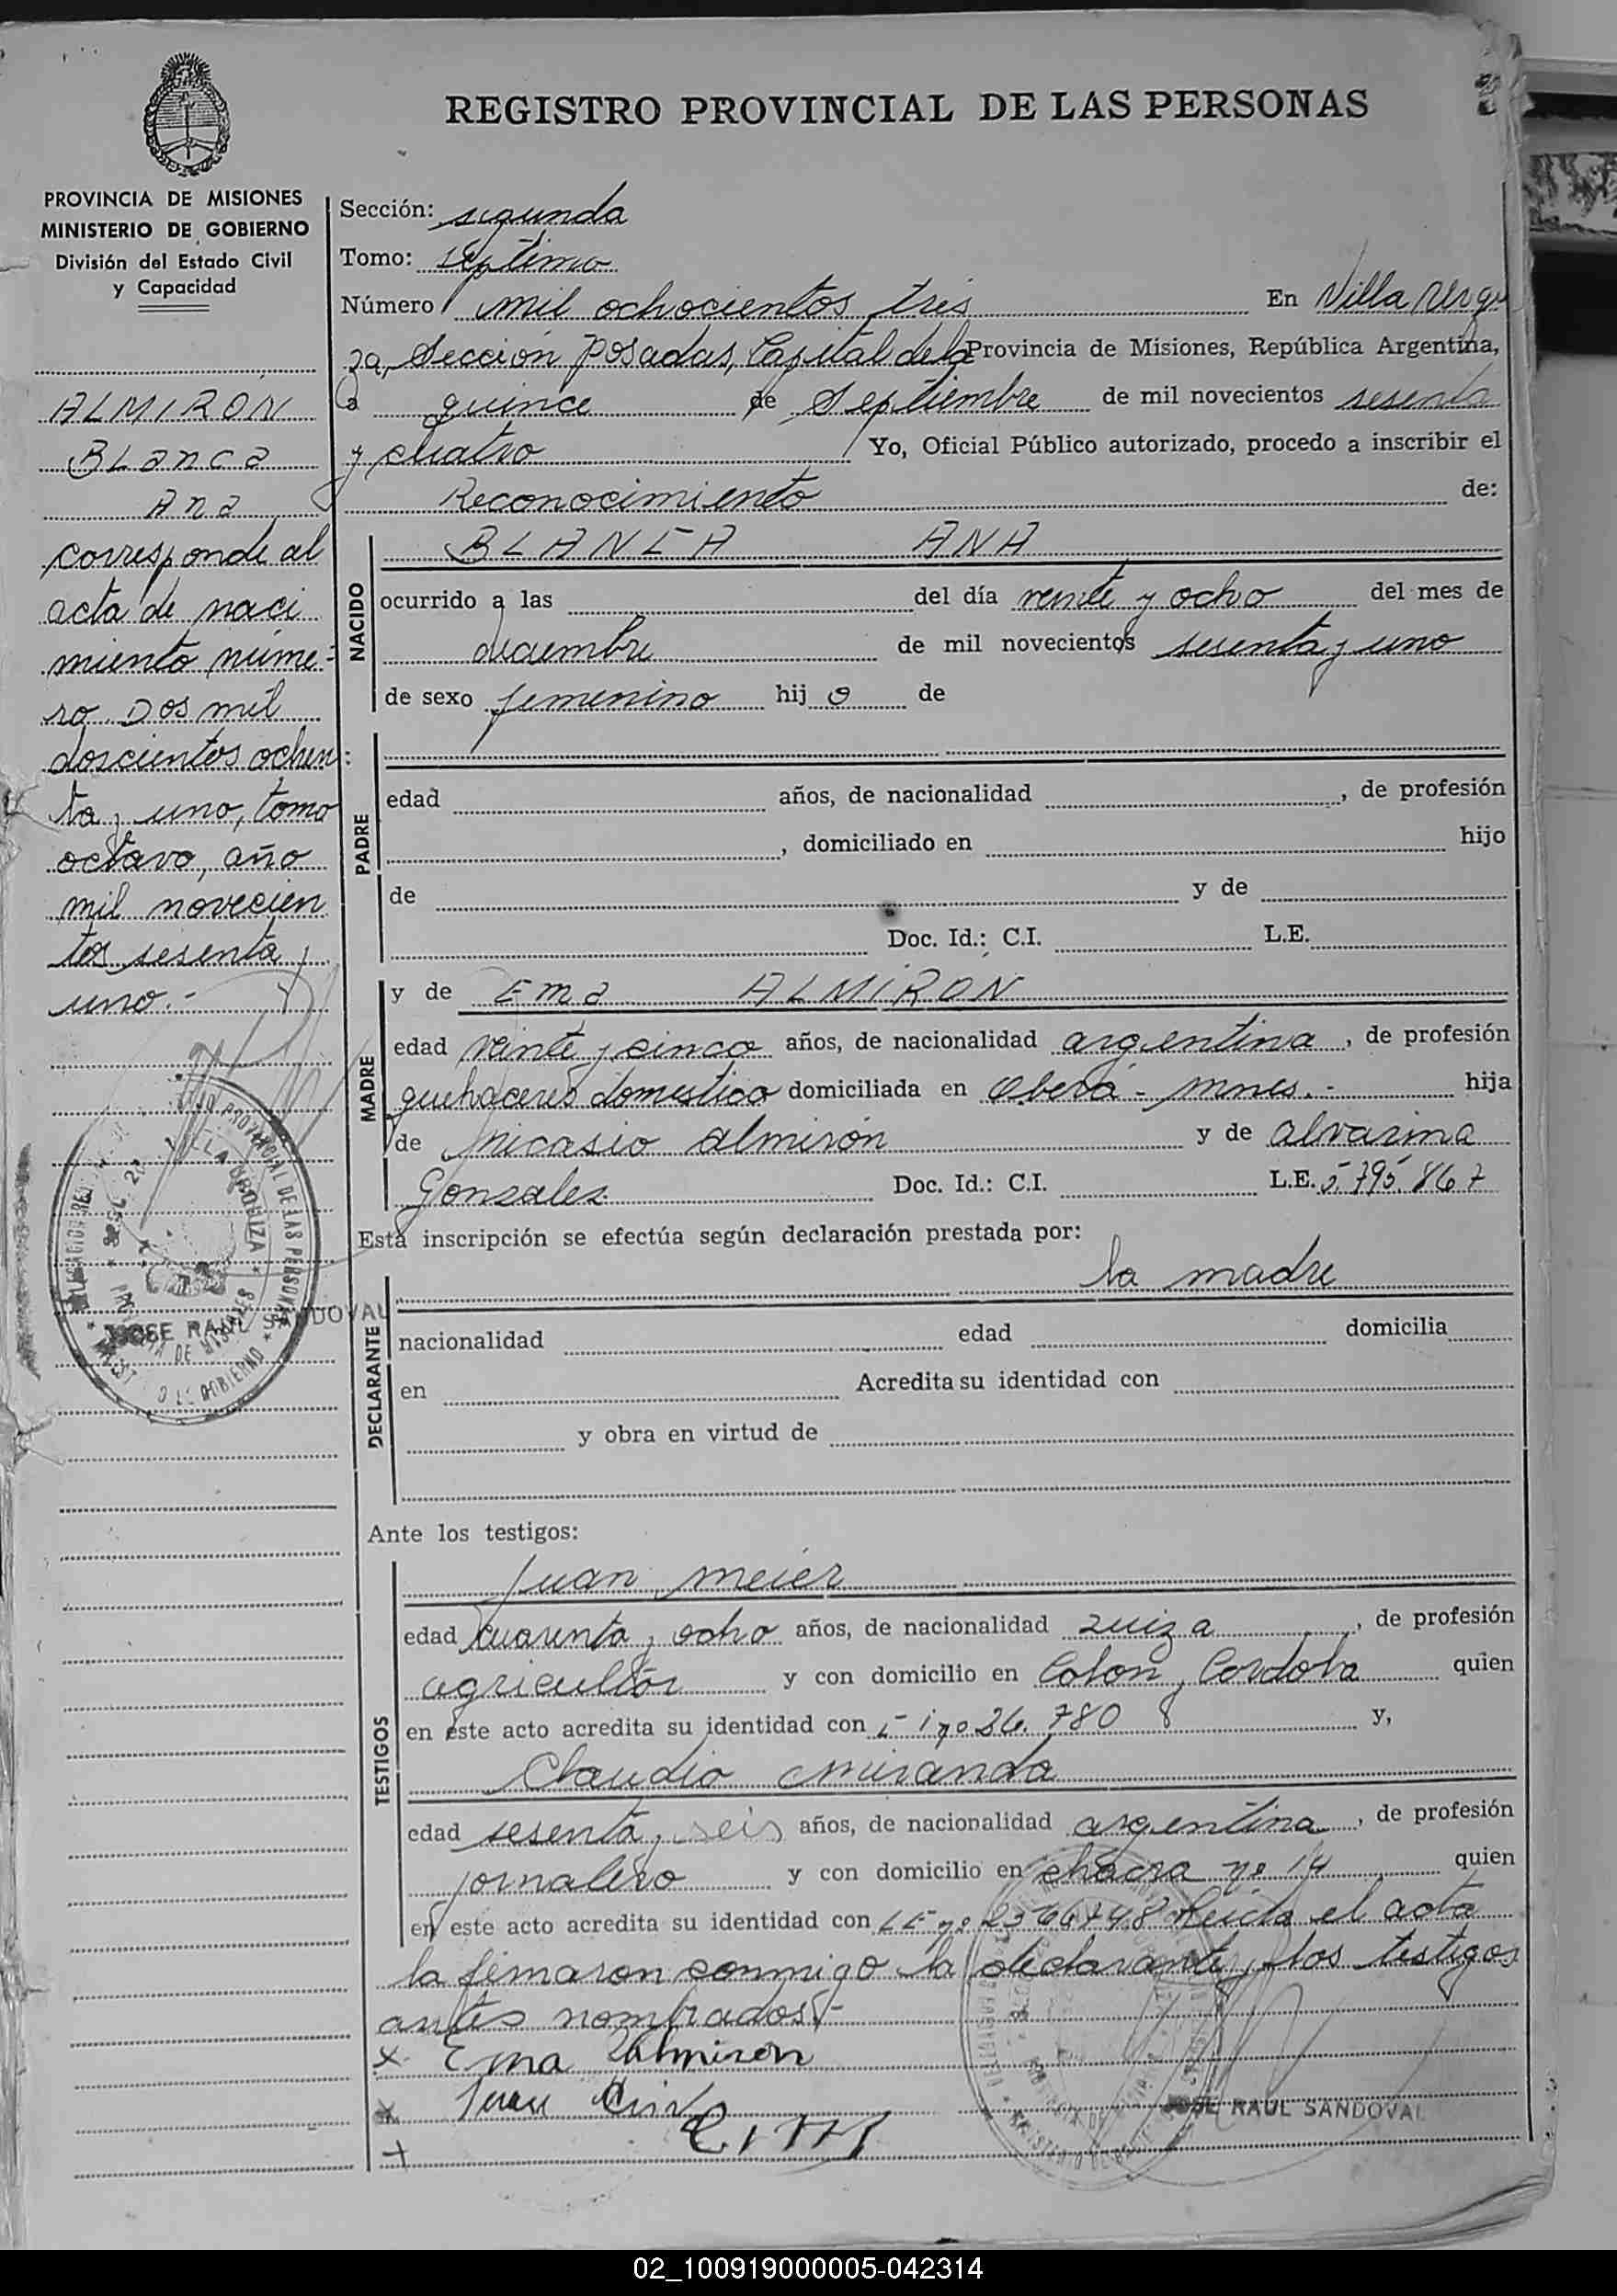 REGISTRO PROVINCIAL DE LAS PERSONAS
PROVINCIA DE MISIONES
MINISTERIO DE GOBIERNO
División del Estado Civil
y Capacidad
ALMIRON
BLanca
Ana
corresponde al
acta de naci
miento núme-
ro Dos mil
doscientos ochen
ta y uno, tomo
octavo, año
mil novecien
tos sesenta y
uno.-
JOSE RAUL SANDOVAL
Sección: segunda
Tomo: séptimo
Número mil ochocientos tres En Villa Urqui
za, Sección Posadas, Capital de la Provincia de Misiones, República Argentina,
a quince de Septiembre de mil novecientos sesenta
y cuatro Yo, Oficial Público autorizado, procedo a inscribir el
Reconocimiento de:
NACIDO
BLANCA ANA
ocurrido a las del día veinte y ocho del mes de
diciembre de mil novecientos sesenta y uno
de sexo femenino hij a de
PADRE
edad años, de nacionalidad , de profesión
, domiciliado en hijo
de y de
Doc. Id.: C.I. L.E.
MADRE
y de Ema ALMIRON
edad veinte y cinco años, de nacionalidad argentina , de profesión
quehaceres domestico domiciliada en Oberá - mnes.- hija
de Nicasio almirón y de alvarina
Gonzalez Doc. Id.: C.I. L.E. 5.795.867
Esta inscripción se efectúa según declaración prestada por:
la madre
DECLARANTE
nacionalidad edad domicilia
en Acredita su identidad con
y obra en virtud de
Ante los testigos:
TESTIGOS
Juan meier
edad cuarenta y ocho años, de nacionalidad zuiza , de profesión
agricultor y con domicilio en Colon y Cordoba quien
en este acto acredita su identidad con 780 y,
Claudio miranda
edad sesenta y seis años, de nacionalidad argentina , de profesión
jornalero y con domicilio en chacra nº 14 quien
en este acto acredita su identidad con LE nº el acta
la firmaron conmigo la declarante y los testigos
antes nombrados.-
x Ema Almiron
x Juan
+
JOSE RAUL SANDOVAL
02_100919000005-042314